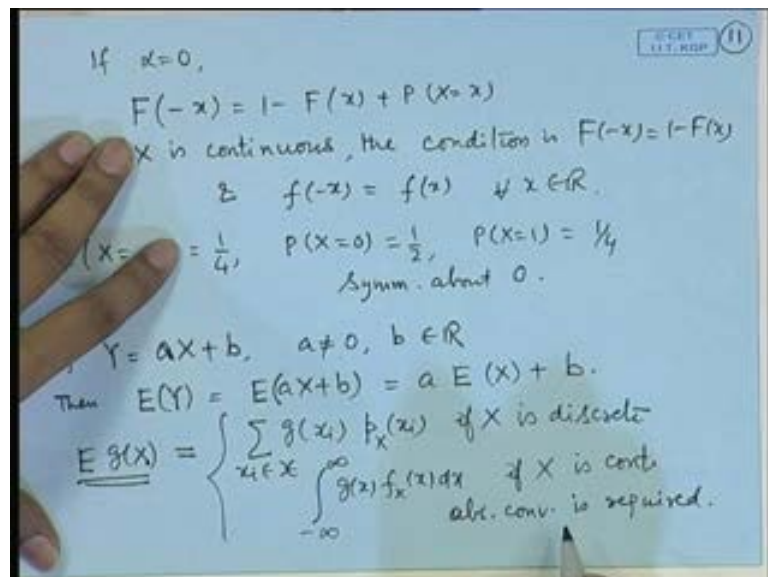 C CET
I.I.T. KGP
11
If α=0,
F(-x) = 1- F(x) + P(X=x)
X is continuous, the condition is F(-x)=1-F(x)
& f(-x) = f(x) ∀ x ∈ ℝ.
(X= = 1/4, P(X=0) = 1/2, P(X=1) = 1/4
Symm. about 0.
Y= aX+b, a≠0, b ∈ ℝ
Then E(Y) = E(aX+b) = a E(X) + b.
E g(X) = { ∑ g(xi) p_X(xi) if X is discrete
xi ∈ X
∫_{-∞}^{∞} g(x) f_X(x) dx if X is cont.
abs. conv. is required.